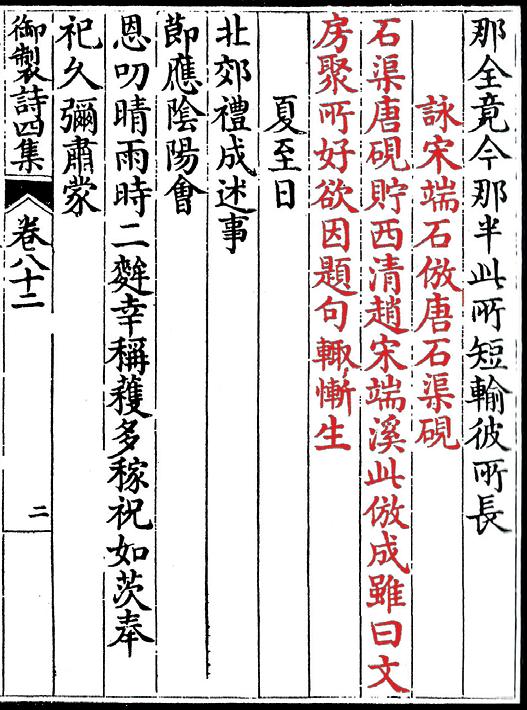 那全竟今那半此所短輸彼所長
詠宋端石倣唐石渠硯
石渠唐硯貯西清趙宋端溪此倣成雖曰文
房聚所好欲因題句輙慚生
夏至日
北郊禮成述事
節應陰陽會
恩叨晴雨時二麰幸稱穫多稼祝如茨奉
祀久彌肅蒙
御製詩四集
卷八十二
二